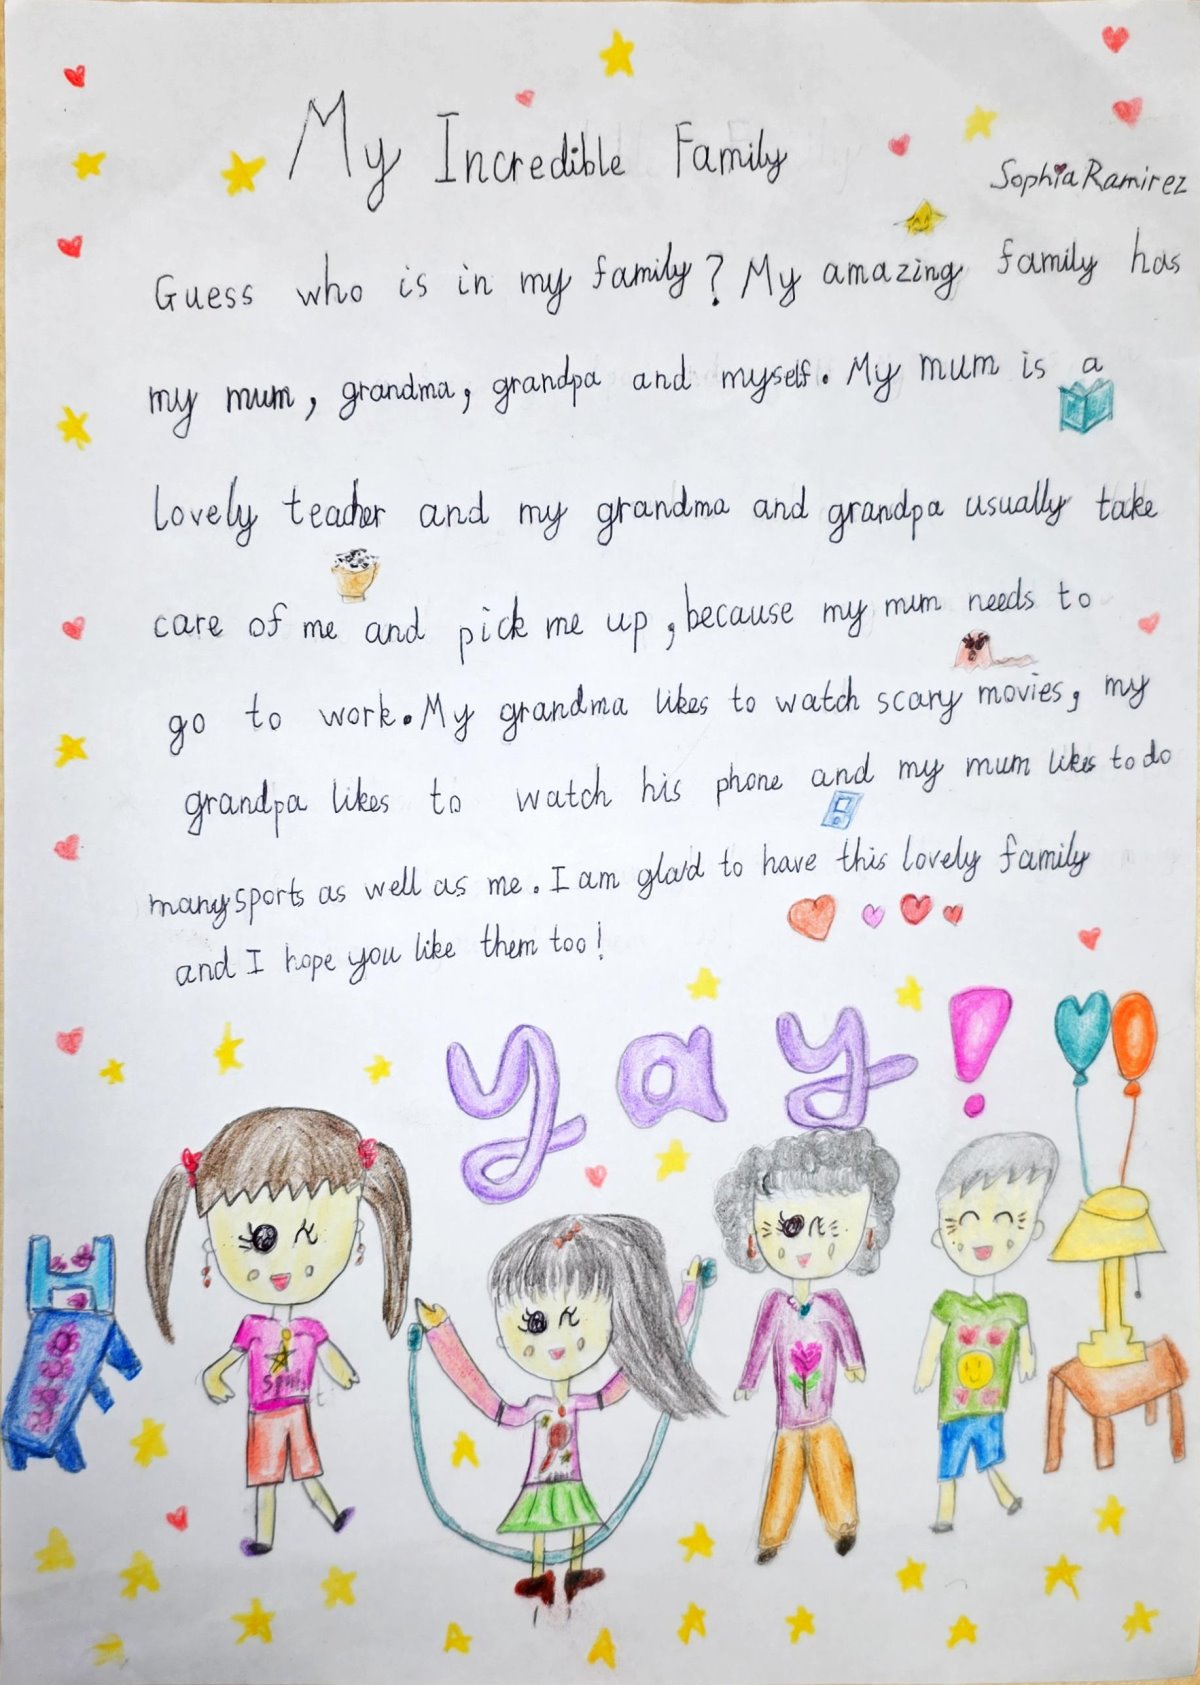 My Incredible Family
Sophia Ramirez
Guess who is in my family? My amazing family has
my mum, grandma, grandpa and myself. My mum is a
lovely teacher and my grandma and grandpa usually take
care of me and pick me up, because my mum needs to
go to work. My grandma likes to watch scary movies, my
grandpa likes to watch his phone and my mum likes to do
many sports as well as me. I am glad to have this lovely family
and I hope you like them too!
yay!